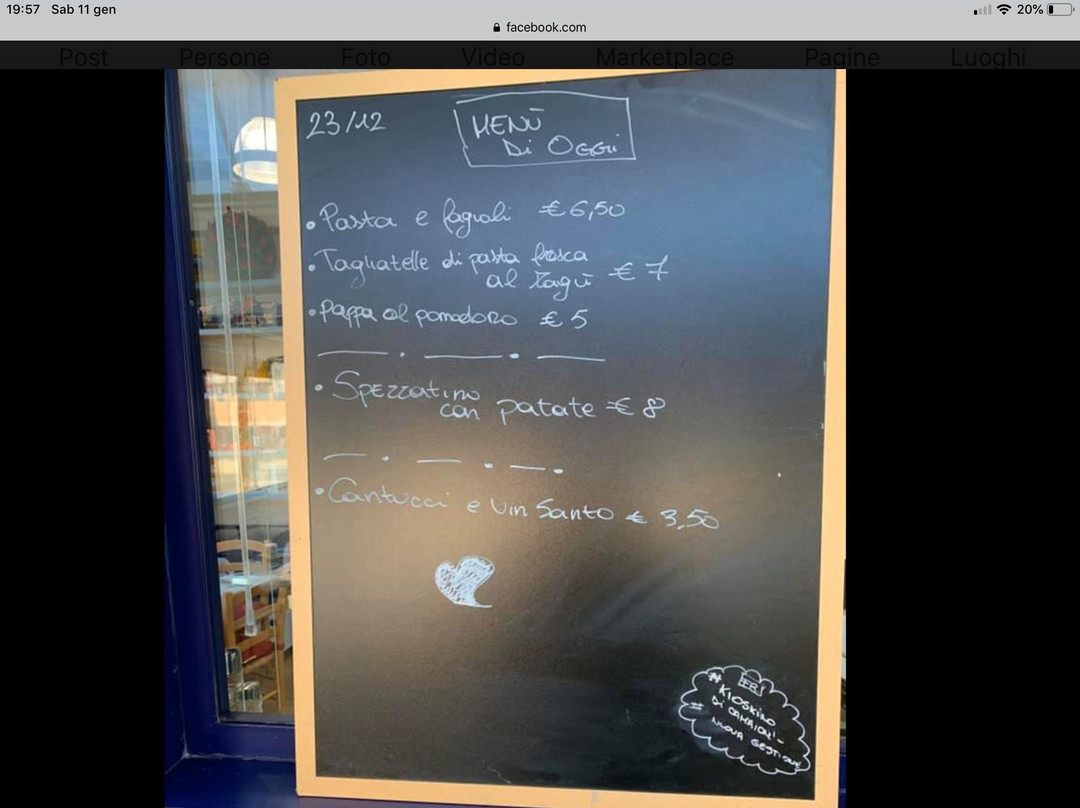 19:57 Sab 11 gen 20%
facebook.com
Post Persone Foto Video Marketplace Pagine Luoghi
23/12
MENÙ
Di OGGi
• Pasta e fagioli € 6,50
• Tagliatelle di pasta fresca
al ragù € 7
• Pappa al pomodoro € 5
• Spezzatino
con patate € 8
• Cantucci e Vin Santo € 3,50
# KIOSKINO
Di CAMAIONi -
# NUOVA GESTIONE